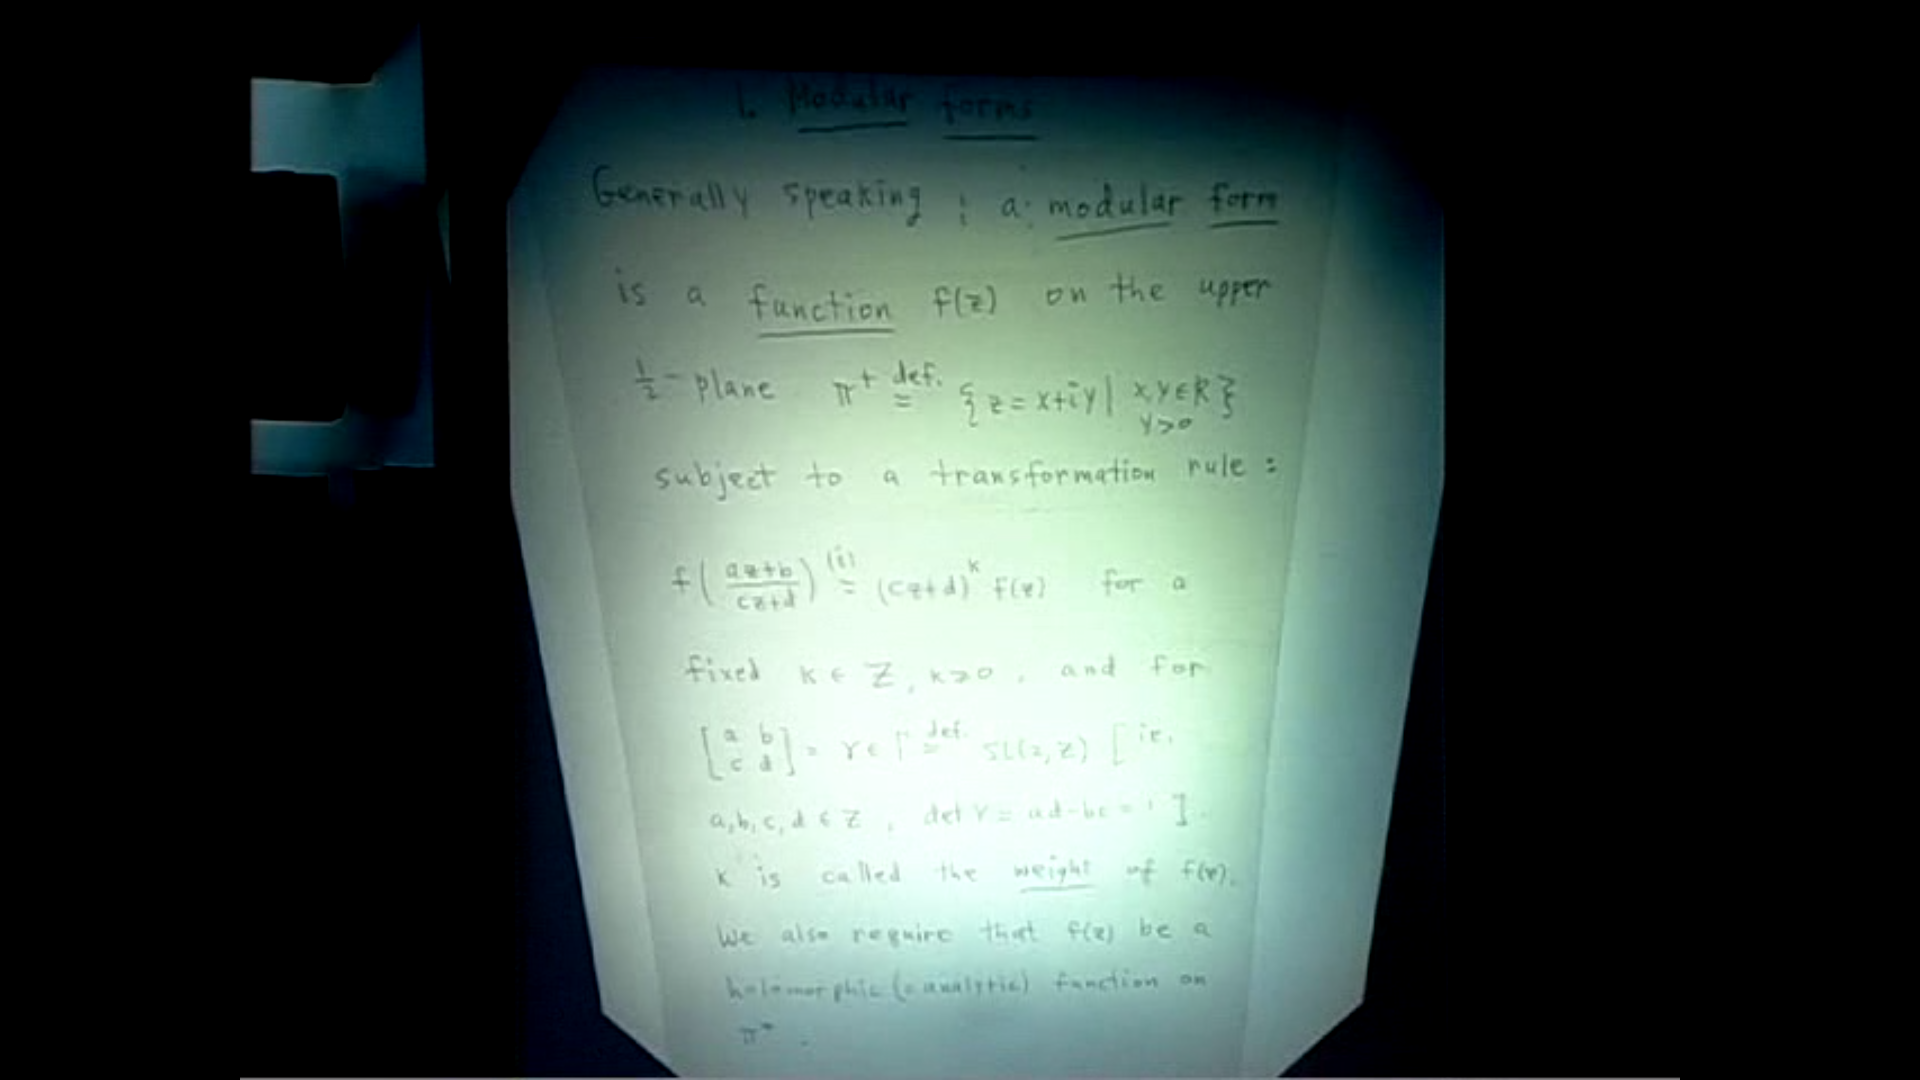 1. Modular forms
Generally speaking ; a modular form
is a function f(z) on the upper
½-plane π⁺ def. = { z = x+iy | x,y∈R, y>0 }
subject to a transformation rule :
f( az+b / cz+d ) (i) = (cz+d)^k f(z) for a
fixed k ∈ Z, k>0, and for
[ a b ; c d ] = γ ∈ Γ def. = SL(2,Z) [ie.
a,b,c,d ∈ Z, det γ = ad-bc = 1 ].
k is called the weight of f(z).
We also require that f(z) be a
holomorphic (=analytic) function on
π⁺.